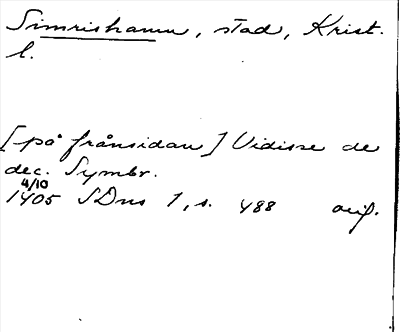 Simrishamn, stad, Krist.
l.
[på frånsidan] Vidisse de
dec. Symbr.
4/10
1405 SDns 1, s. 488 orig.